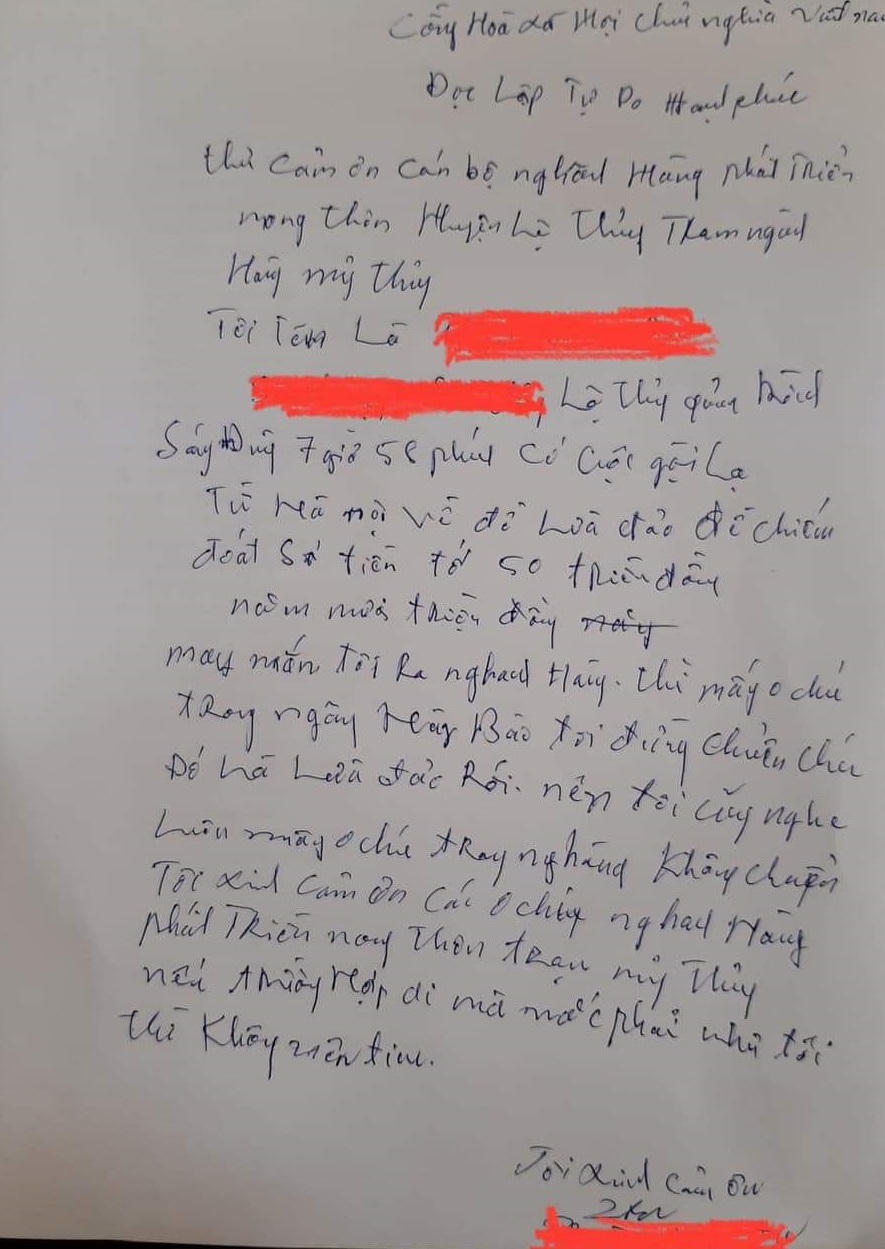 Cộng Hoà Xã Hội Chủ nghĩa Việt na
Độc Lập Tự Do Hạnh phúc
thư cảm ơn cán bộ nghành Hàng phát Triển
nong thôn Huyện Lệ Thủy Tham ngân
Hàng mỹ thủy
Tôi Tên Là
Lệ Thủy quản Bình
Sáng 7 giờ 58 phút có cuộc gọi Lạ
Từ Hà nội về để Lừa đảo để chiếm
đoát Số tiền tới 50 triệu đồng
năm mươi triệu đồng
may mắn tôi Ra nghanh Hàng. thì mấy o chú
trong ngân Hàng Bảo tôi đừng chuyển chú
Đó Là Lừa đảo Rồi. nên tôi cũng nghe
Luôn mấy o chú trong nghàng Không chuyển
Tôi xinh cảm ơn các o chú nghanh Hàng
phát Triển nong thon trạm mỹ Thủy
nếu trường Hợp di mà mắc phải như tôi
thì Không nên tin.
Tôi xinh cảm ơn